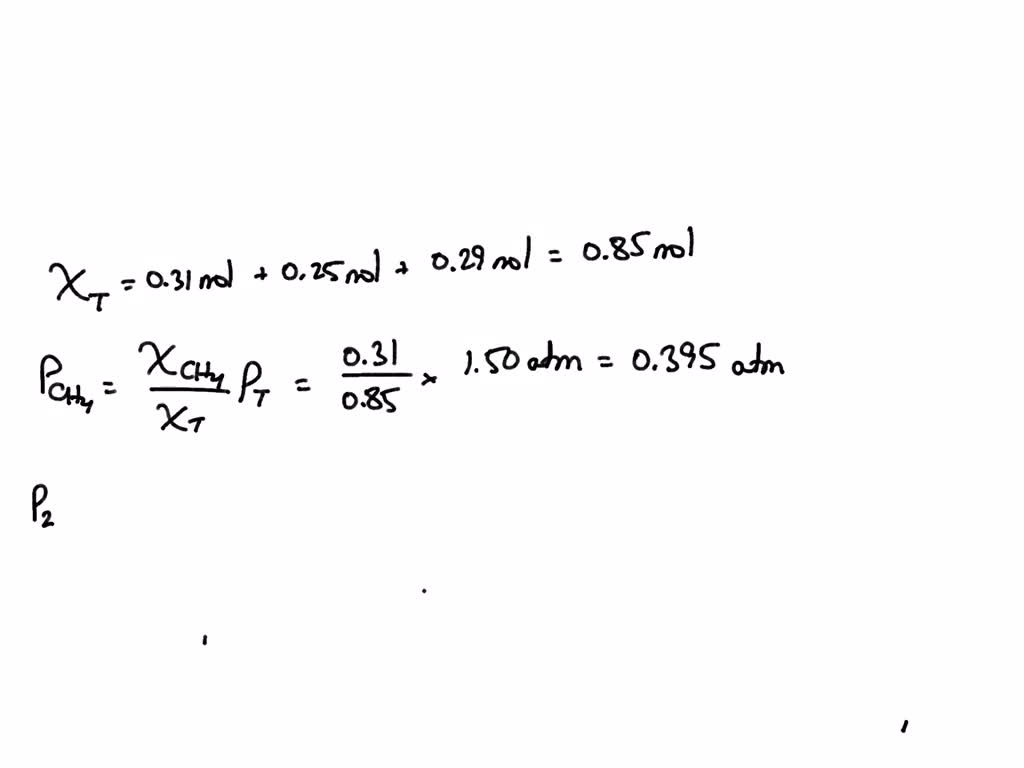 χ_T = 0.31 mol + 0.25 mol + 0.29 mol = 0.85 mol
P_CH4 = χ_CH4 / χ_T P_T = 0.31 / 0.85 × 1.50 atm = 0.395 atm
P_2